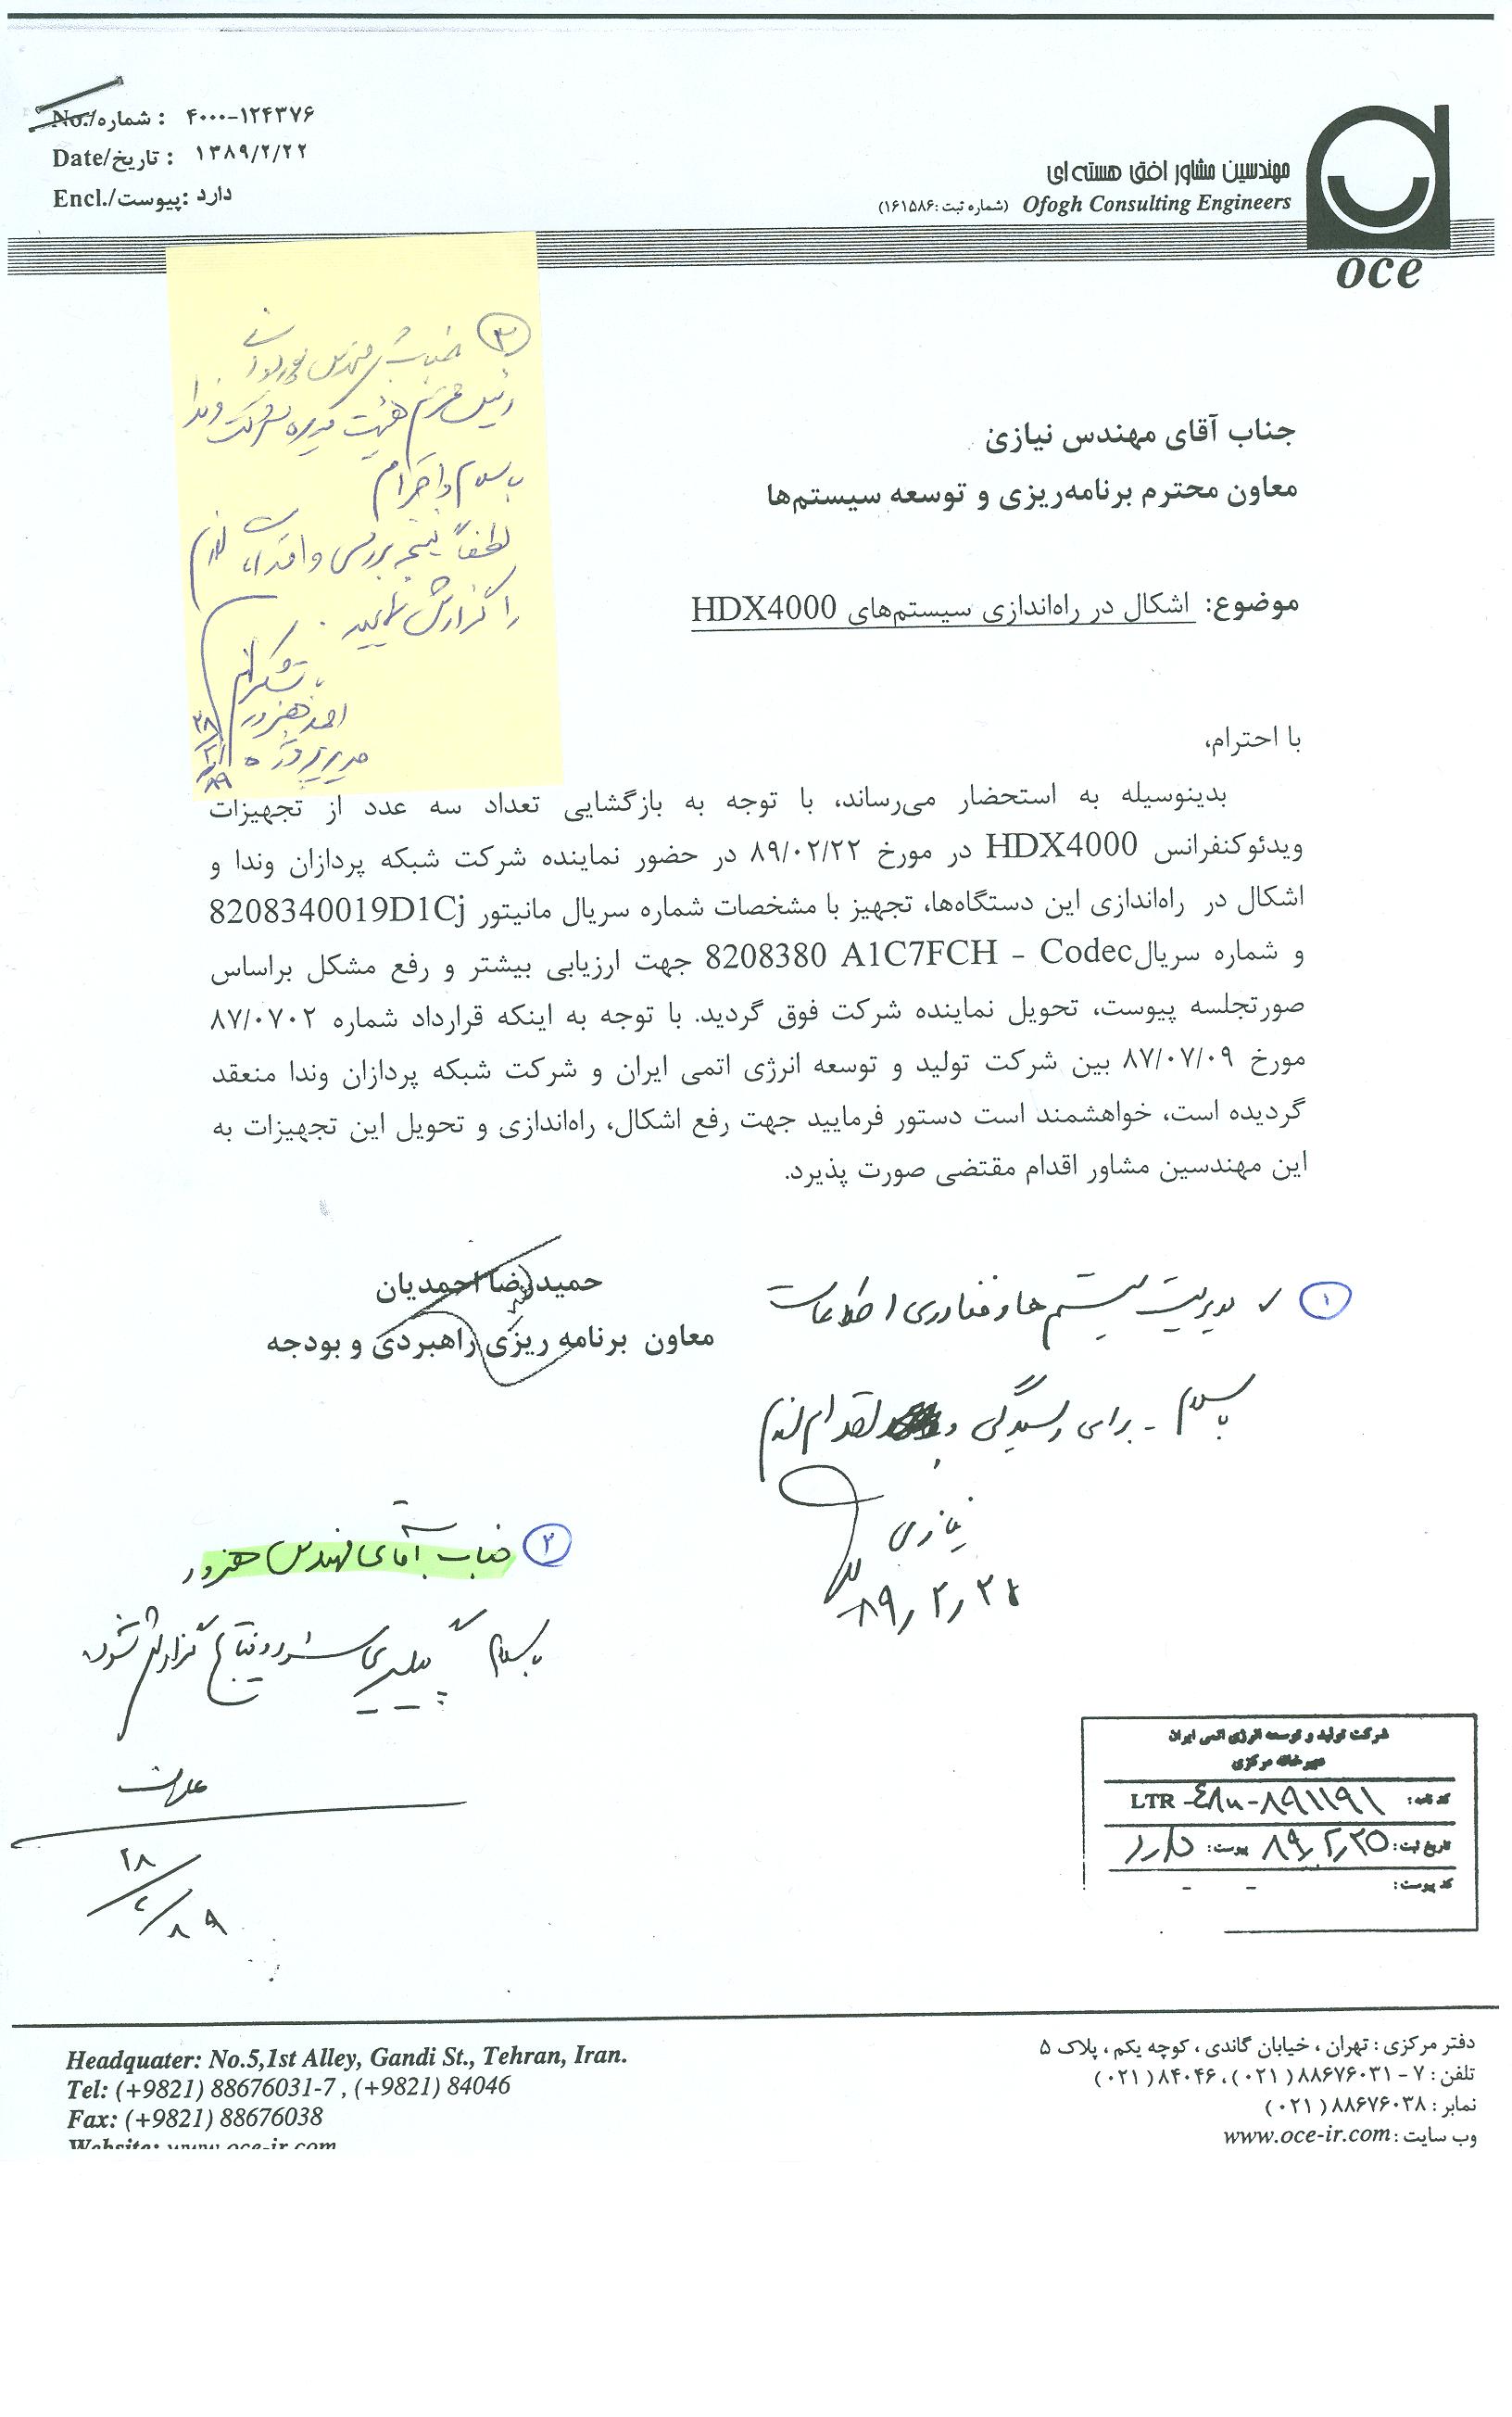 No./شماره : ۴۰۰۰-۱۲۴۳۷۶
Date/تاریخ : ۱۳۸۹/۲/۲۲
Encl./پیوست: دارد
مهندسین مشاور افق هسته ای
Ofogh Consulting Engineers (شماره ثبت :۱۶۱۵۸۶)
oce
۳
جناب مهندس
رئیس محترم هیئت مدیره شرکت وندا
با سلام و احترام
لطفاً نتیجه بررسی و اقدامات لازم
را گزارش نمایید.
با تشکر
احمد هنرور
مدیر پروژه
۲۸/۲/۸۹
جناب آقای مهندس نیازی
معاون محترم برنامه‌ریزی و توسعه سیستم‌ها
موضوع: اشکال در راه‌اندازی سیستم‌های HDX4000
با احترام،
بدینوسیله به استحضار می‌رساند، با توجه به بازگشایی تعداد سه عدد از تجهیزات
ویدئوکنفرانس HDX4000 در مورخ ۸۹/۰۲/۲۲ در حضور نماینده شرکت شبکه پردازان وندا و
اشکال در راه‌اندازی این دستگاه‌ها، تجهیز با مشخصات شماره سریال مانیتور 8208340019D1Cj
و شماره سریال 8208380 A1C7FCH – Codec جهت ارزیابی بیشتر و رفع مشکل براساس
صورتجلسه پیوست، تحویل نماینده شرکت فوق گردید. با توجه به اینکه قرارداد شماره ۸۷/۰۷۰۲
مورخ ۸۷/۰۷/۰۹ بین شرکت تولید و توسعه انرژی اتمی ایران و شرکت شبکه پردازان وندا منعقد
گردیده است، خواهشمند است دستور فرمایید جهت رفع اشکال، راه‌اندازی و تحویل این تجهیزات به
این مهندسین مشاور اقدام مقتضی صورت پذیرد.
حمیدرضا احمدیان
معاون برنامه ریزی راهبردی و بودجه
۱ مدیریت سیستم ها و فناوری اطلاعات
با سلام - برای رسیدگی و اقدام لازم
نیازی
۸۹,۲,۲۸
۲ جناب آقای مهندس هنرور
با سلام پیگیری شود و نتایج گزارش شود.
۲۸/۲/۸۹
شرکت تولید و توسعه انرژی اتمی ایران
دبیرخانه مرکزی
کد نامه: LTR
تاریخ ثبت: ۸۹,۲,۲۵ پیوست: دارد
کد پیوست: - -
Headquater: No.5,1st Alley, Gandi St., Tehran, Iran.
Tel: (+9821) 88676031-7 , (+9821) 84046
Fax: (+9821) 88676038
Website: www.oce-ir.com
دفتر مرکزی : تهران ، خیابان گاندی ، کوچه یکم ، پلاک ۵
تلفن : ۷ - ۸۸۶۷۶۰۳۱ (۰۲۱) ، ۸۴۰۴۶ (۰۲۱)
نمابر : ۸۸۶۷۶۰۳۸ (۰۲۱)
وب سایت : www.oce-ir.com